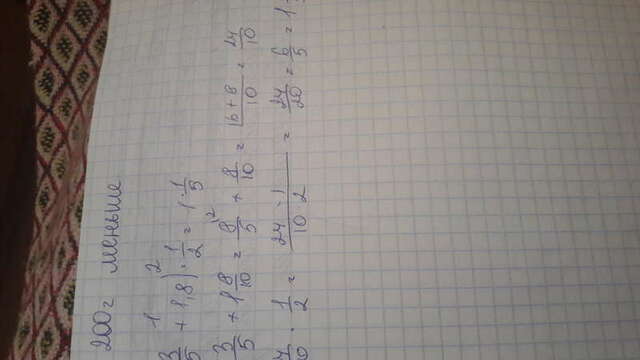 200г меньше
1 2
3/5 + 1,8) · 1/2 = 1 1/5
3/5 + 1 8/10 = 8/5 \2 + 8/10 = 16+8/10 = 24/10
· 1/2 = 24 · 1/10 2 = 24/20 = 6/5 = 1